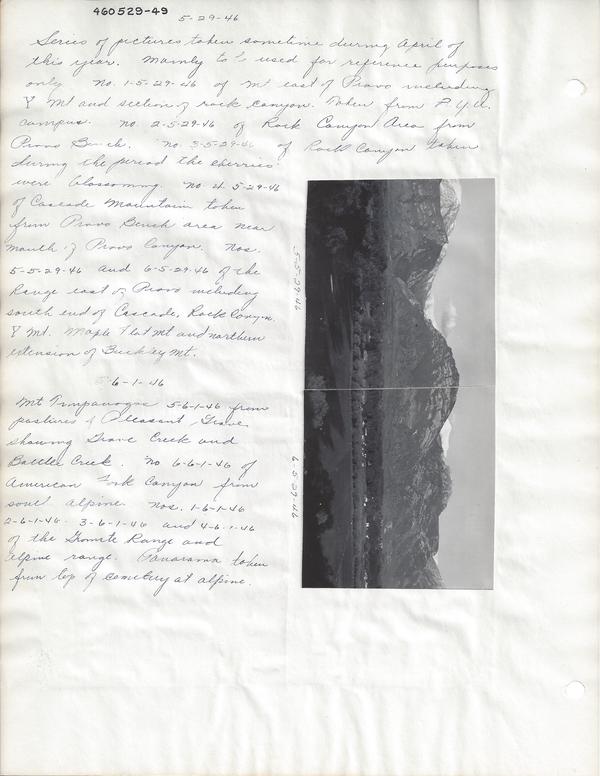 460529-49
5-29-46
Series of pictures taken sometime during April of
this year. Mainly to be used for reference purposes
only. No. 1-5-29-46 of Mt east of Provo including
Y Mt and section of rock Canyon. Taken from B.Y.U.
campus. No. 2-5-29-46 of Rock Canyon Area from
Provo Bench. No. 3-5-29-46 of Rock Canyon taken
during the period the cherries
were blossoming. No 4-5-29-46
of Cascade Mountain taken
from Provo Bench area near
mouth of Provo Canyon. Nos.
5-5-29-46 and 6-5-29-46 of the
Range east of Provo including
south end of Cascade, Rock Canyon,
Y Mt. Maple Flat Mt and northern
extension of Buckley Mt.
5-5-29-46
6-5-29-46
5-6-1-46
Mt Timpanogos 5-6-1-46 from
pastures of Pleasant Grove
showing Grove Creek and
Battle Creek. No 6-6-1-46 of
American Fork Canyon from
south Alpine. Nos. 1-6-1-46
2-6-1-46 3-6-1-46 and 4-6-1-46
of the Granite Range and
alpine range. Panorama taken
from top of cemetery at alpine.